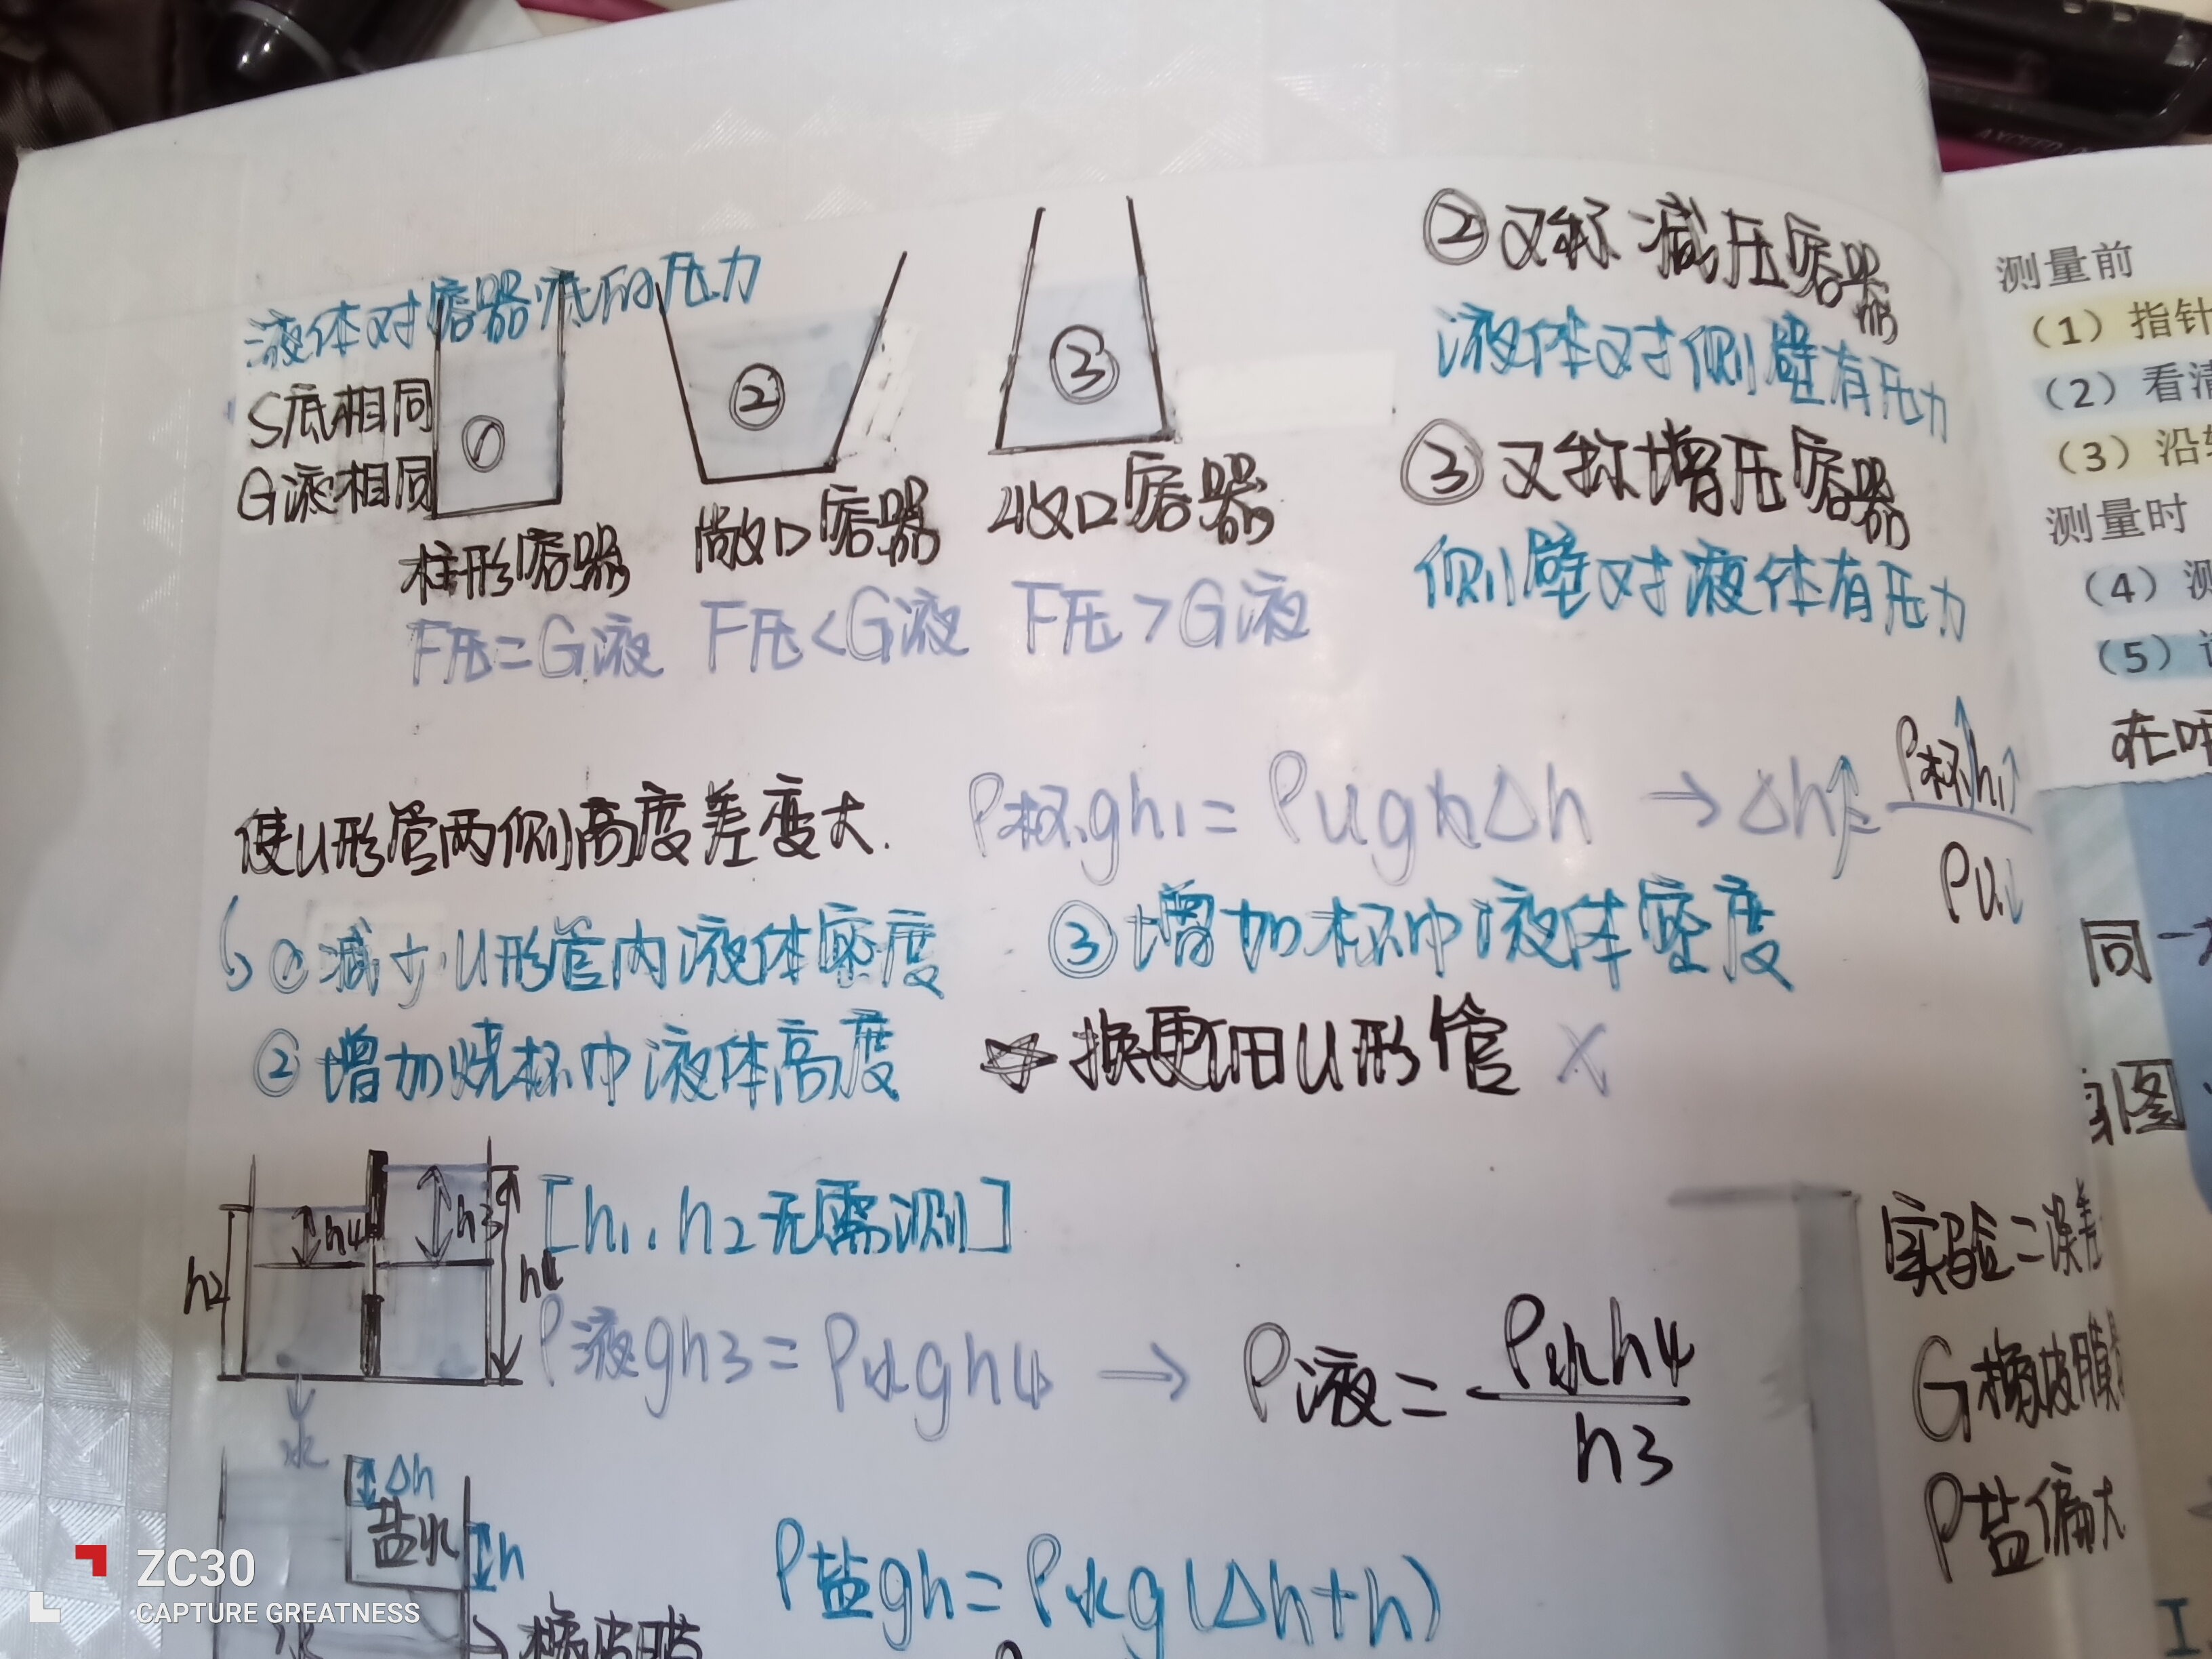 液体对容器底的压力
S底相同
G液相同
①
②
③
柱形容器
敞口容器
收口容器
F压=G液
F压<G液
F压>G液
②又称减压容器
液体对侧壁有压力
③又称增压容器
侧壁对液体有压力
使U形管两侧高度差变大.
ρ杯gh1=ρUgΔh → Δh↑=ρ杯↑h1↑/ρU↓
①减小U形管内液体密度
③增加杯中液体密度
②增加烧杯中液体高度
☆换更细U形管 ×
h2
h4
h3
[h1、h2无需测]
ρ液gh3=ρ水gh4 → ρ液=ρ水h4/h3
水
Δh
盐水
h
ρ盐gh=ρ水g(Δh+h)
水
橡皮膜
测量前
(1)指针
(2)看清
(3)沿
测量时
(4)测
(5)
同一
实验二误差
G橡皮膜
ρ盐偏大
ZC30
CAPTURE GREATNESS